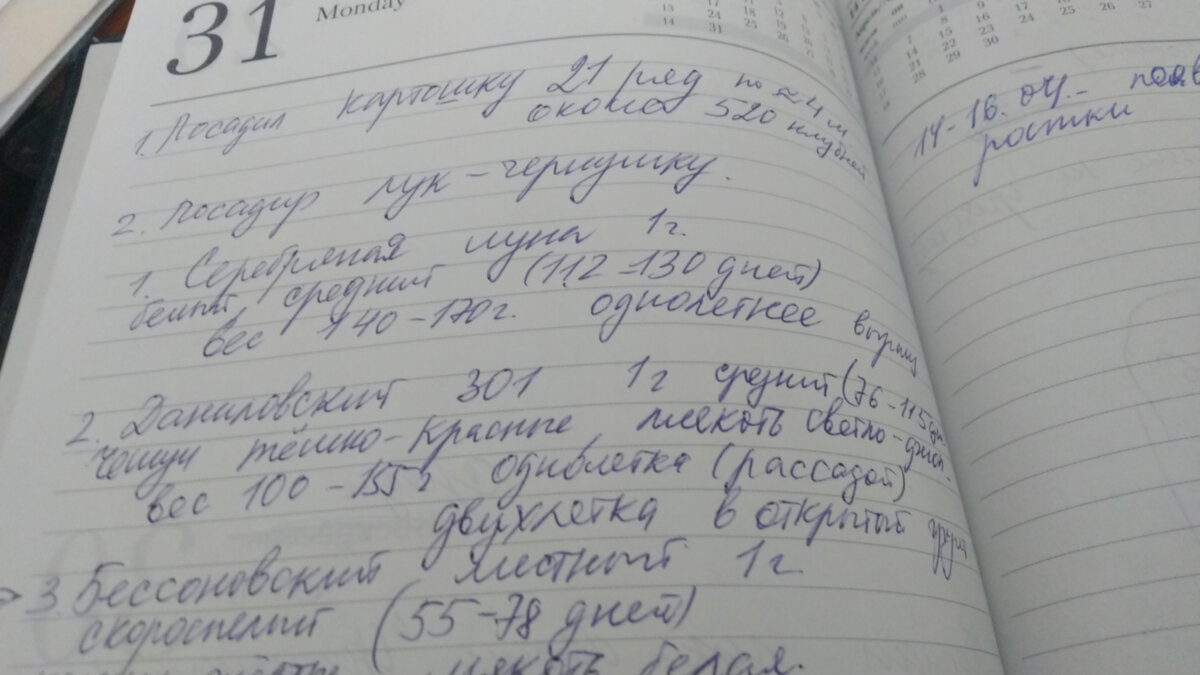 31 Monday
1. Посадил картошку 21 ряд по ≈ 4 м
около 520 клубней.
2. Посадил лук-чернушку.
1. Серебряная луна 1г.
белый, средний (112-130 дней)
вес 140-170г. однолетнее
2. Даниловский 301 1г средний (76-115 дн.
Чешуи тёмно-красные мякоть светло-
вес 100-155г однолетка (рассадой)
двухлетка в открытый грунт
→ 3. Бессоновский местный 1г.
скороспелый (55-78 дней)
мякоть белая.
14-16.04.-
ростки